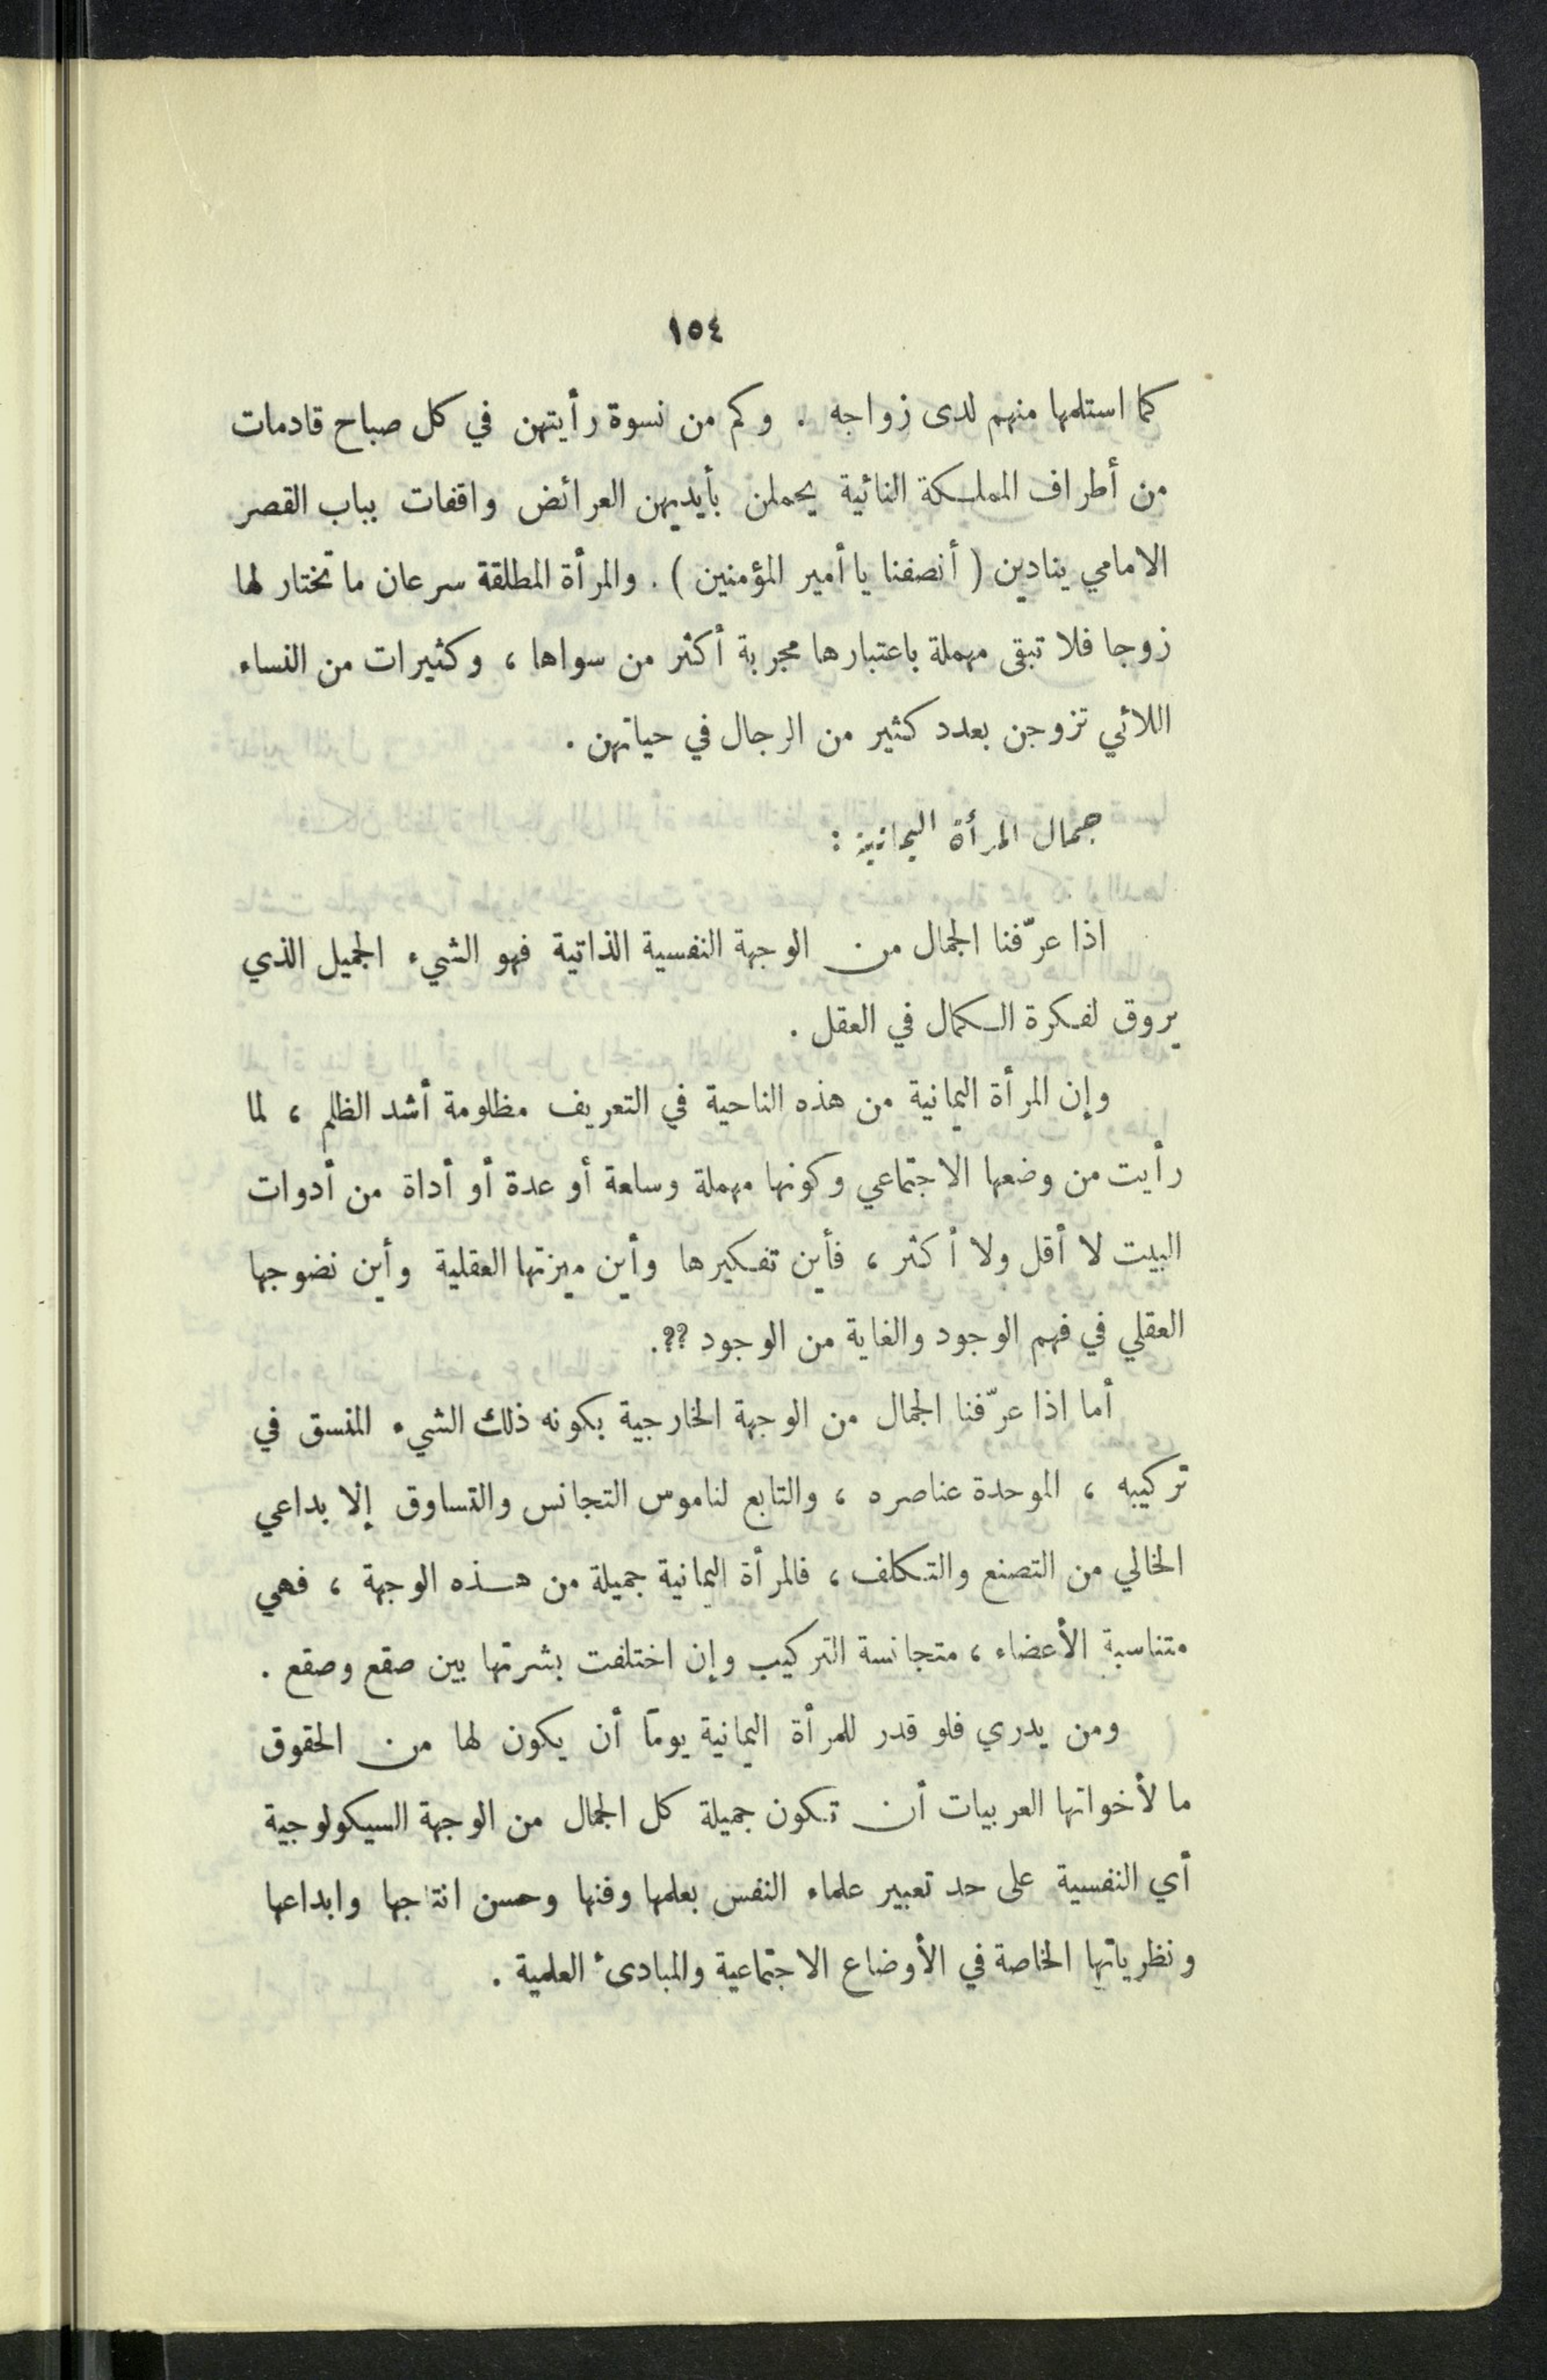 ١٥٤
كما استلمها منهم لدى زواجه . وكم من نسوة رأيتهن في كل صباح قادمات
من أطراف المملكة النائية يحملن بأيديهن العرائض واقفات بباب القصر
الامامي ينادين ( أنصفنا يا أمير المؤمنين ) . والمرأة المطلقة سرعان ما تختار لها
زوجا فلا تبقى مهملة باعتبارها مجربة أكثر من سواها ، وكثيرات من النساء
اللائي تزوجن بعدد كثير من الرجال في حياتهن .
جمال المرأة اليمانية :
اذا عرّفنا الجمال من الوجهة النفسية الذاتية فهو الشيء الجميل الذي
يروق لفكرة الكمال في العقل .
وإن المرأة اليمانية من هذه الناحية في التعريف مظلومة أشد الظلم ، لما
رأيت من وضعها الاجتماعي وكونها مهملة وسلعة أو عدة أو أداة من أدوات
البيت لا أقل ولا أكثر ، فأين تفكيرها وأين ميزتها العقلية وأين نضوجها
العقلي في فهم الوجود والغاية من الوجود ؟؟.
أما اذا عرّفنا الجمال من الوجهة الخارجية بكونه ذلك الشيء المنسق في
تركيبه ، الموحدة عناصره ، والتابع لناموس التجانس والتساوق إلا بداعي
الخالي من التصنع والتكلف ، فالمرأة اليمانية جميلة من هذه الوجهة ، فهي
متناسبة الأعضاء ، متجانسة التركيب وإن اختلفت بشرتها بين صقع وصقع .
ومن يدري فلو قدر للمرأة اليمانية يوماً أن يكون لها من الحقوق
ما لأخواتها العربيات أن تكون جميلة كل الجمال من الوجهة السيكولوجية
أي النفسية على حد تعبير علماء النفس بعلمها وفنها وحسن انتاجها وابداعها
ونظرياتها الخاصة في الأوضاع الاجتماعية والمبادئ العلمية .